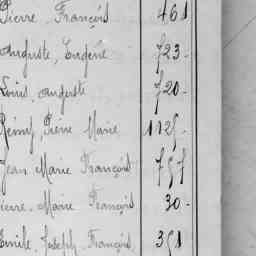 Pierre François 461
Auguste, Eugène 723-
Louis, Auguste 720-
Rémy, Pierre Marie 1125-
Jean Marie François 757
Pierre, Marie François 30-
Emile, Joseph, François 351